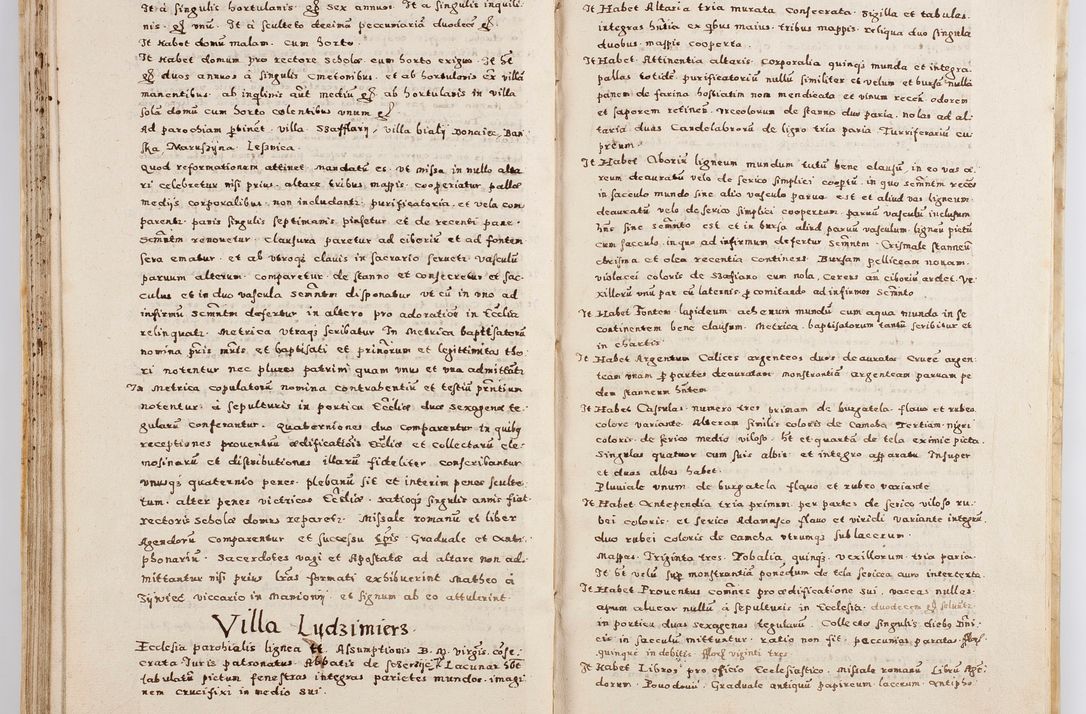 It à singulis hortulanis gſ sex annuos. It a singulis inquili-
nis. gſ vnū. It à sculteto decimā pecuniariā duodecē gſ.
It Habet domū malam. cum horto.
It Habet domum pro rectore Scholæ. cum horto exiguo. It ht
gſ duos annuos à singulis Cmetonibus. et ab hortulanis Ex villa
manentibus. ab inqlinis aūt mediū gſ. ab hortulanis in villa
sola domū cum horto colentibus vnum gſ
Ad parochiam ptinet. villa. Szafflary, villa bialy Donaiec, Ban
ska, Maruszyna, Lesznica.
Quod reformationem attinet. Mandatū es. vt missa in nullo alta
ri celebretur nisi prius. altare. tribus mappis. cooperiatur. pallæ
medijs corporalibus. non includantʳ. purificatoria, et vela com
parentʳ. panis singulis septimanis. pinsetur. et de recenti pane.
Scmntm renouetur. Clausura paretur ad ciboriū et ad fontem
sera ematur. et ab vtroqз clauis in sacrario seruetʳ vasculū
paruum alterum. comparetur. de stanno et consecretur et sac-
culus et in duo vascula Scmntm disponatur. vt cū in vno ad
infirmū scmntm defertur in altero pro adoratioē in Eccłia
relinquatʳ. Metrica vtraqз scribatur In Metrica baptisatorū
nomina pris mris. et baptisati et prinorum et legittimitas tho
ri notentur nec plures patrini quam vnus et vna admittātʳ
In Metrica copulatorū nomina contrahentiū et testiū prntium
notentur. à sepulturis in porticu Eccłiæ duæ sexagenæ te-
gularū conferantur. Quaterniones duo comparentur in quibз
receptiones prouentuū ædificatiōis Eccłiæ et collectarū ele-
mosinarū et distributiones illarū fideliter. conscribantur
vnusqз quaternio penes. plebanū sit et interim penes sculte-
tum. alter penes victricos Eccłiæ. ratioqз singulis annis fiat.
rectoris Scholæ domus reparetʳ. Missale romanū et liber
Agendorū comparentur et sucessu tpis. Graduale et Anti-
phonariū. Sacerdotes vagi et Apostatæ ad altare non ad-
mittantur nisi prius lras formati exhibuerint Matheo à
Żywiec viccario in Maniowy. et signum ab eo attulerint.
Villa Lydzimiers.
Ecclesia parohialis lignea tt. Assumptionis B. M. virgis. cōse-
crata Iuris patronatus Abbatis de Lacunar hʒt
tabulatū pictum fenestras integras parietes mundos. imagi
nem crucifixi in medio sui.
It Habet Altaria tria murata Consecrata. Sigilla et tabulas.
integras hntia ex qbus maius. tribus mappis. reliqua duo singula
duobus. mappis cooperta.
It Habet. Attinentia altaris. Corporalia quinqз munda et integra.
pallas totidē. purificatoriū nullū similiter et velum et bursā nullā
panem de farina hostiatim non mendicata et vinum recēn. odorem
et saporem retinēs. vrceolorum de stanno duo paria. nolas ad al-
taria duas Candelabrorū de ligno tria paria Turriferariū cu
preum.
It Habet Ciboriū ligneum mundum tutū bene clausū, in eo vas æ.
reum deauratū velo de serico simplici coopertū. in quo scmntm recēs
in sacculo mundo sine alio vasculo paruo. est et aliud vas ligneum.
deauratū velo de serico simplici coopertum. paruū vasculū inclusum
hns sine scmnto est. et in bursa aliud paruū vasculum. ligneū pictū
cum sacculo. in quo ad infirmum defertur Scmntm. Crismale stanneū
chrisma et olea recentia continens Bursam pelliceam nouam.
violacei coloris de Szafiano cum nola, Cereus añ ciborium ardet. Ve-
xillorū vnū par cū laternis. p comitando ad infirmos Scmnto.
It Habet Fontem lapideum. ac henum mundū cum aqua munda in se
continentem bene clausum. Metrica. baptisatorum tantū scribitur et
in chartis
It Habet Argentum Calices argenteos duos deauratos Cruce argen-
team vnam p partes deauratam monstrantiā argenteam paruam pe
dem stanneum hntem.
It Habet Casulas. numero tres primam de burgatela. flauo et rubeo
colore variante. Alteram similis coloris de Camcha Tertiam. nigri
coloris. de serico medio viloso. ht et quartā de tela eximie picta.
Singulas quatuor cum suis albis. et integro apparatu. Insuper
et duas albas habet.
Pluuiale vnum. de burgatela flauo et rubeo variante
It Habet Antependia tria primum. per partes de serico viloso ru.
bei coloris. et serico Adamasco flauo et viridi variante integrū.
duo rubei coloris de camcha vtrumqз sublacerum.
Mappas. Triginta tres. Tobalia, quinqз. vexillorum. tria paria.
It ht velū sup monstrantiā ponēdum de tela sericea auro intertexta.
It Habet Prouentus comnes pro ædificatione sui, vaccas nullas.
apum aluear nullū à sepulturis in Ecclesia. duodecem gſ soluūtʳ
in porticu duas sexagenas tegularū. Collecta singulis diebз Dni-
cis in sacculū mittuntur. ratio non fit. peccunias paratas. floſ.
quinque in debitis. floſ viginti tres.
It Habet Libros pro officio Ecclesiastico. Missale romanū Librū Age-
dorum. Graduale antiquū papireum. lacerum. Antipho-